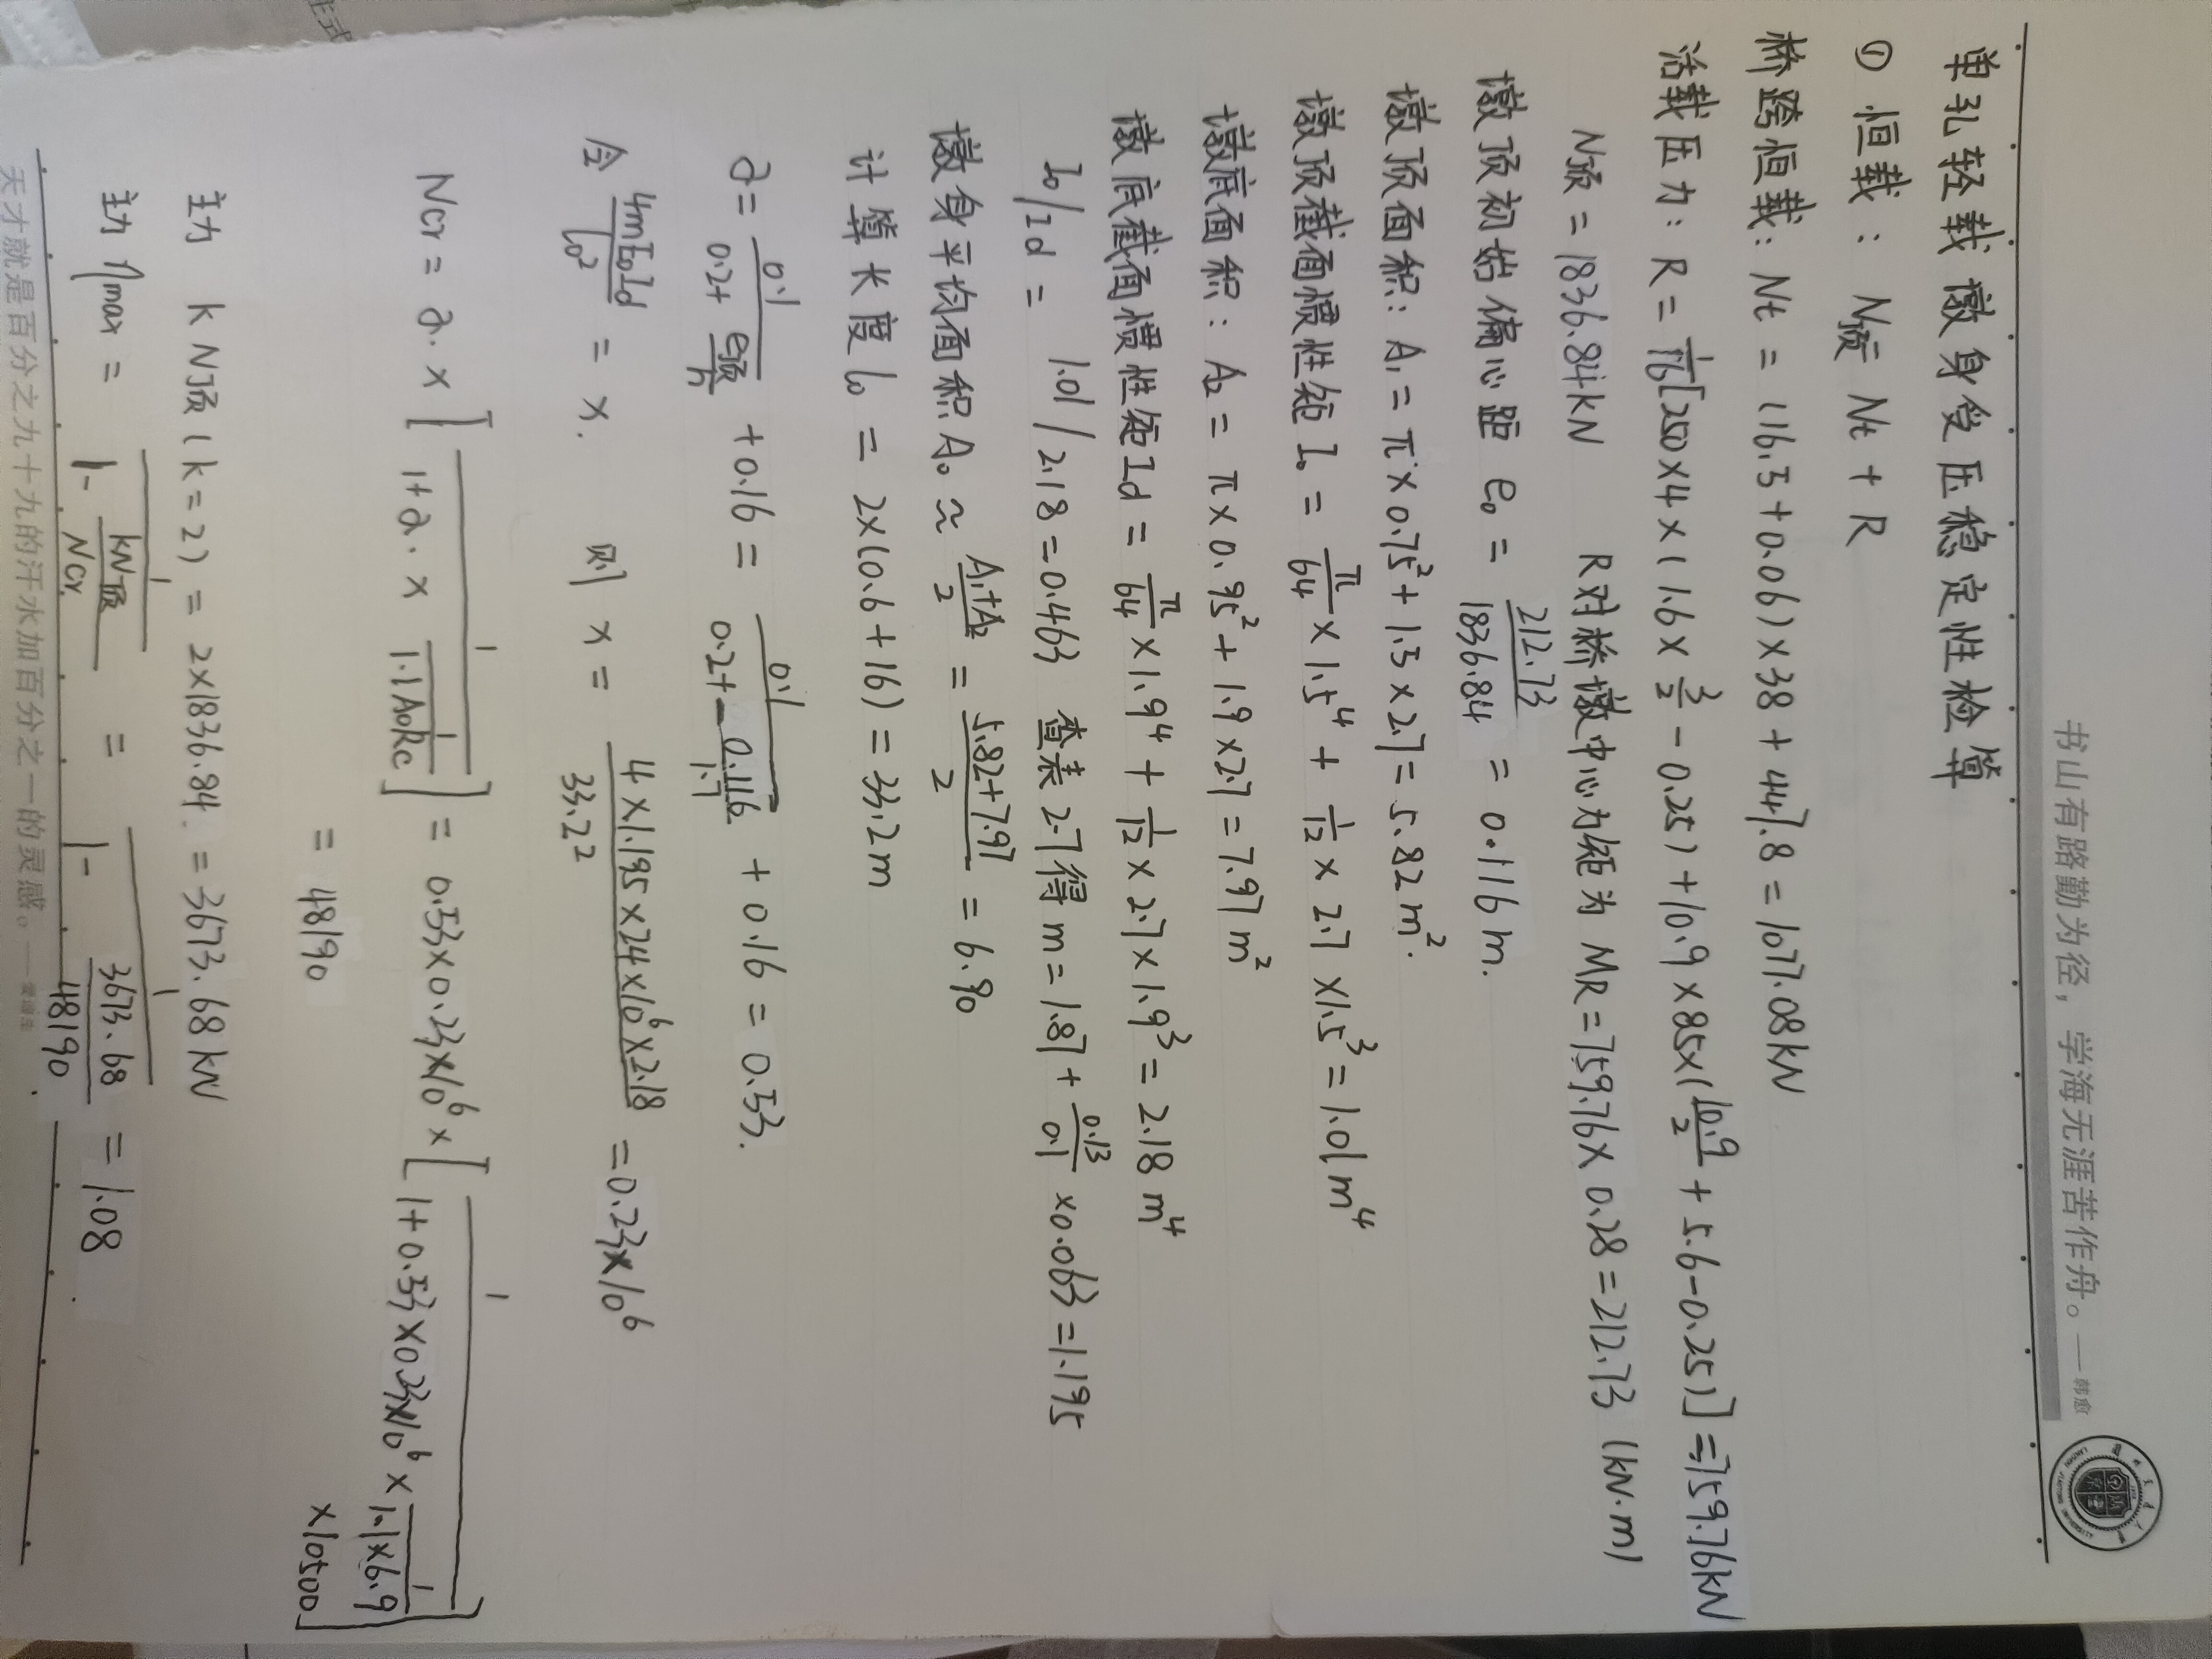 书山有路勤为径，学海无涯苦作舟。——韩愈
LANZHOU JIAOTONG UNIVERSITY
单孔轻载 墩身受压稳定性检算
① 恒载： N顶= Nt + R
桥跨恒载: Nt = (16.5+0.06)×38 + 447.8 = 1077.08kN
活载压力: R = 1/16[250×4×(1.6×3/2-0.25)+10.9×85×(10.9/2+5.6-0.25)]=759.76kN
N顶 = 1836.84kN R对桥墩中心力矩为 MR=759.76×0.28=212.73 (kN·m)
墩顶初始偏心距 e₀ = 212.73/1836.84 = 0.116 m.
墩顶面积: A₁ = π×0.75²+1.5×2.7=5.82m².
墩顶截面惯性矩 I₀ = π/64×1.5⁴ + 1/12×2.7×1.5³=1.01m⁴
墩底面积: A₂ = π×0.95²+1.9×2.7=7.97m²
墩底截面惯性矩Id = π/64×1.9⁴+1/12×2.7×1.9³=2.18 m⁴
I₀/Id = 1.01/2.18=0.463 查表2-7得 m=1.87+0.13/0.1×0.063=1.195
墩身平均面积A₀≈A₁+A₂/2=5.82+7.97/2=6.90
计算长度l₀ = 2×(0.6+16)=33.2m
∂=0.1/0.2+e顶/h+0.16=0.1/0.2+0.116/1.7+0.16=0.53.
令 4mE₀Id/l₀² = x. 则 x = 4×1.195×24×10⁶×2.18/33.2² =0.23×10⁶
Ncr = ∂.×[1/1+∂.×1/1.1A₀Rc]=0.53×0.23×10⁶×[1/1+0.53×0.23×10⁶×1/1.1×6.9×10500]
= 48190
主力 K N顶(k=2) = 2×1836.84 = 3673.68kN
主力 ηmax = 1/1-kN顶/Ncr = 1/1-3673.68/48190 = 1.08
天才就是百分之九十九的汗水加百分之一的灵感。——